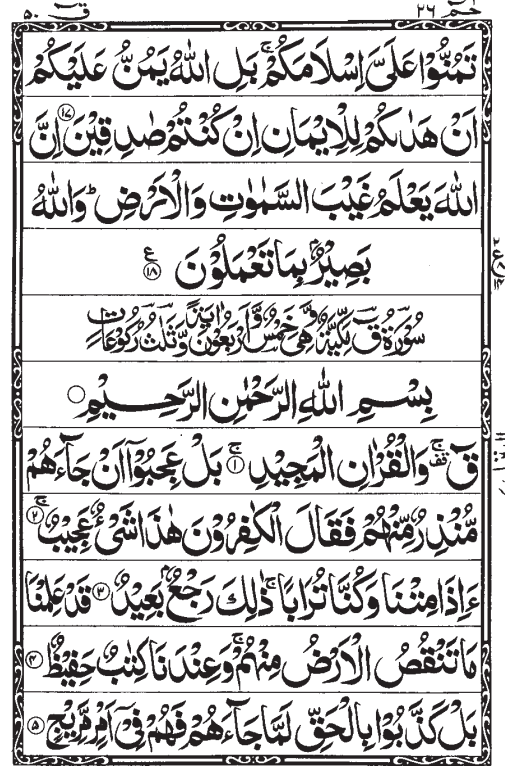 حٰمٓ ٢٦
قٓ ٥٠
تَمُنُّوْا عَلَىَّ اِسْلَامَكُمْ ۚ بَلِ اللّٰهُ يَمُنُّ عَلَيْكُمْ
اَنْ هَدٰىكُمْ لِلْاِيْمَانِ اِنْ كُنْتُمْ صٰدِقِيْنَ ۝١٧ اِنَّ
اللّٰهَ يَعْلَمُ غَيْبَ السَّمٰوٰتِ وَالْاَرْضِ ؕ وَاللّٰهُ
بَصِيْرٌۢ بِمَا تَعْمَلُوْنَ ۝١٨ ع
سُوْرَةُ قٓ مَكِّيَّةٌ وَّهِىَ خَمْسٌ وَّاَرْبَعُوْنَ اٰيَةً وَّثَلٰثُ رُكُوْعَاتٍ
بِسْمِ اللّٰهِ الرَّحْمٰنِ الرَّحِيْمِ ۝
قٓ ۚ قف وَالْقُرْاٰنِ الْمَجِيْدِ ۝١ ۚ بَلْ عَجِبُوْٓا اَنْ جَآءَهُمْ
مُّنْذِرٌ مِّنْهُمْ فَقَالَ الْكٰفِرُوْنَ هٰذَا شَىْءٌ عَجِيْبٌ ۝٢ ۚ
ءَاِذَا مِتْنَا وَكُنَّا تُرَابًا ۚ ذٰلِكَ رَجْعٌۢ بَعِيْدٌ ۝٣ قَدْ عَلِمْنَا
مَا تَنْقُصُ الْاَرْضُ مِنْهُمْ ۚ وَعِنْدَنَا كِتٰبٌ حَفِيْظٌ ۝٤
بَلْ كَذَّبُوْا بِالْحَقِّ لَمَّا جَآءَهُمْ فَهُمْ فِىْٓ اَمْرٍ مَّرِيْجٍ ۝٥